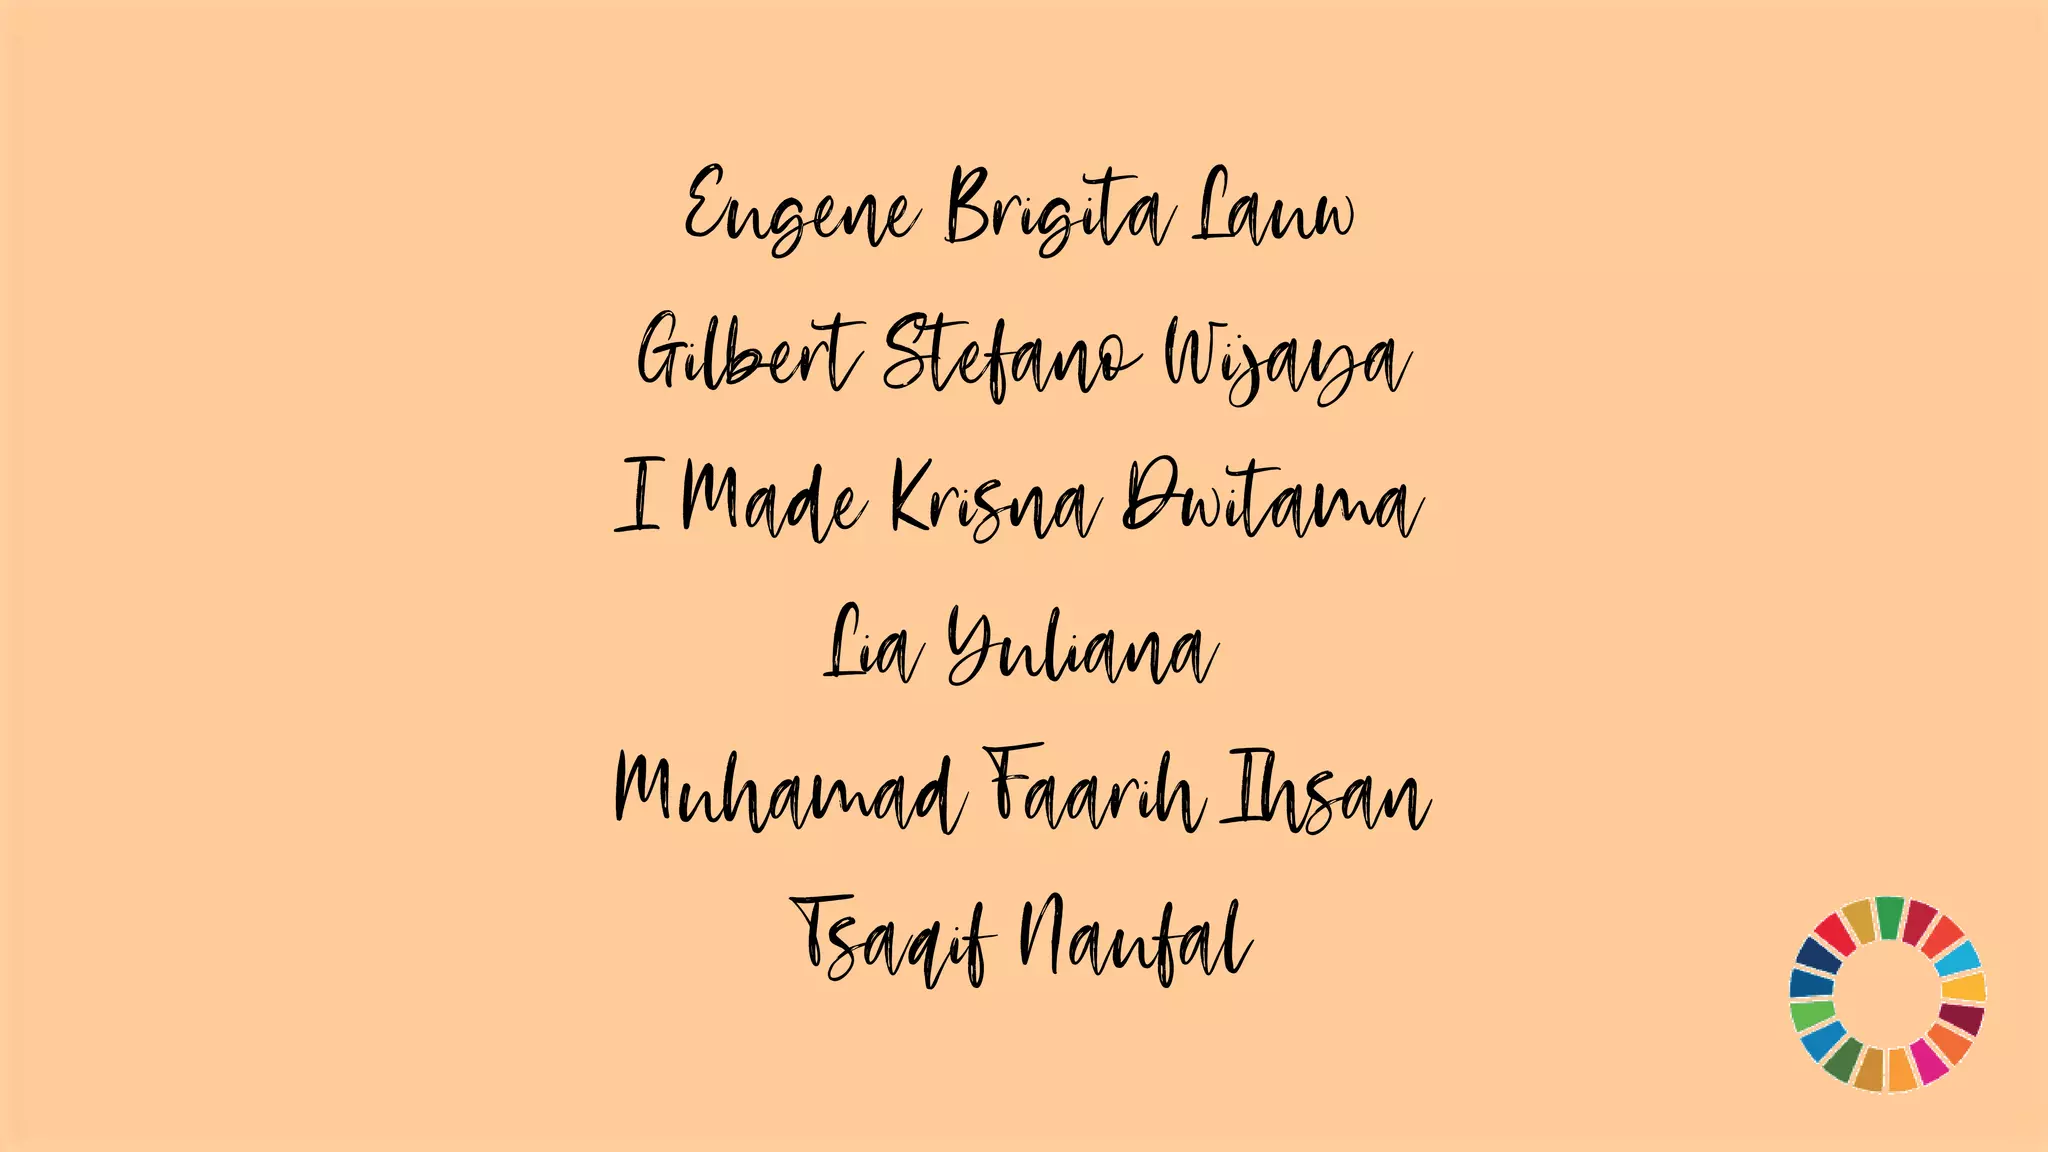 Eugene Brigita Lauw
Gilbert Stefano Wijaya
I Made Krisna Dwitama
Lia Yuliana
Muhamad Faarih Ihsan
Tsaqif Naufal